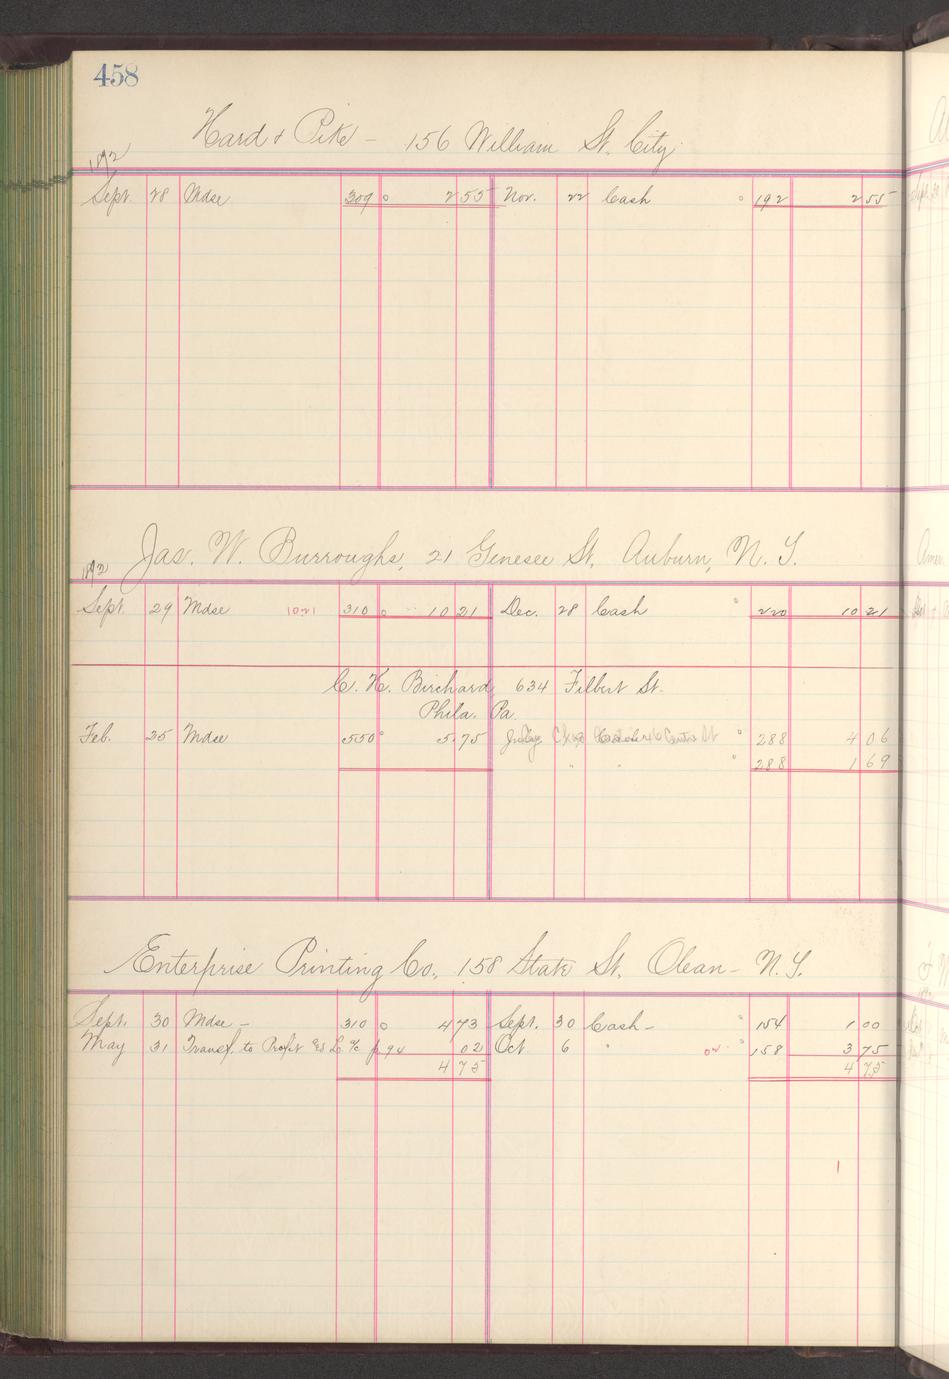 458
Hard & Pike - 156 William St. City
1892
Sept. 28 Mdse 309 2 55 Nov. 22 Cash 192 2 55
Jas. W. Burroughs, 21 Genesee St, Auburn, N. Y.
1892
Sept. 29 Mdse 1021 310 10 21 Dec. 28 Cash 220 10 21
C. H. Birchard, 634 Filbert St.
Phila. Pa.
Feb. 25 Mdse 550 5.75 288 4 06
" " 288 1 69
Enterprise Printing Co., 158 State St, Olean - N. Y.
Sept. 30 Mdse - 310 4 73 Sept. 30 Cash - 154 1 00
May 31 Transf. to Profit & L % p 94 02 Oct 6 " 02 158 3 75
4 75 4 75